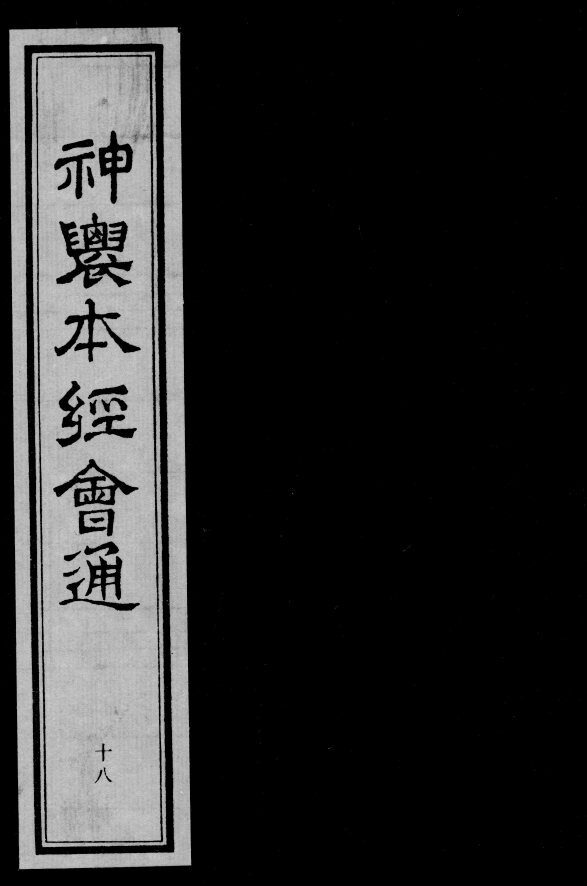 神農本經會通
十八